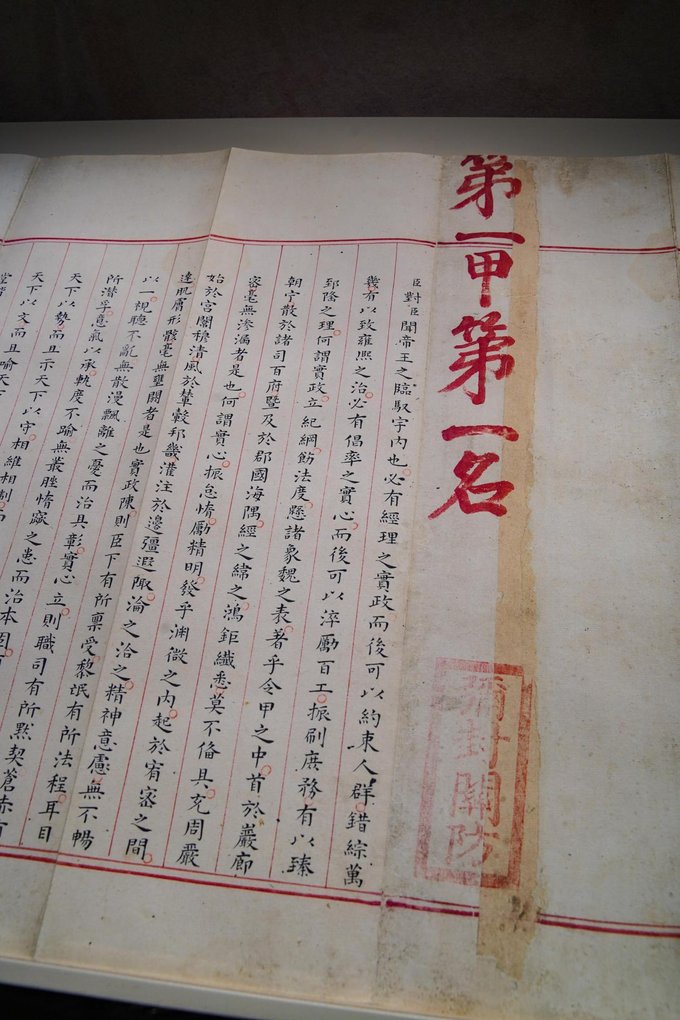 第一甲第一名
彌封關防
臣對臣聞帝王之臨馭宇內也必有經理之實政而後可以約束人群錯綜萬
幾有以致雍熙之治必有倡率之實心而後可以淬勵百工振刷庶務有以臻
郅隆之理何謂實政立紀綱飭法度懸諸象魏之表著乎令甲之中首於巖廊
朝宁散於諸司百府暨及於郡國海隅經之緯之鴻鉅纖悉莫不備具充周嚴
密毫無滲漏者是也何謂實心振怠惰勵精明發乎淵微之內起於宥密之間
始於宮闈穆清風於輦轂邦畿灌注於邊疆遐陬淪之洽之精神意慮無不暢
達肌膚形骸毫無壅閼者是也實政陳則臣下有所稟受黎氓有所法程耳目
以一視聽不亂無散漫飄離之憂而治具彰實心立則職司有所默契蒼赤有
所潛孚意氣以承軌度不踰無叢脞惰窳之患而治本固
天下以勢而且示天下以守相維相制而
天下以文而且喻天下